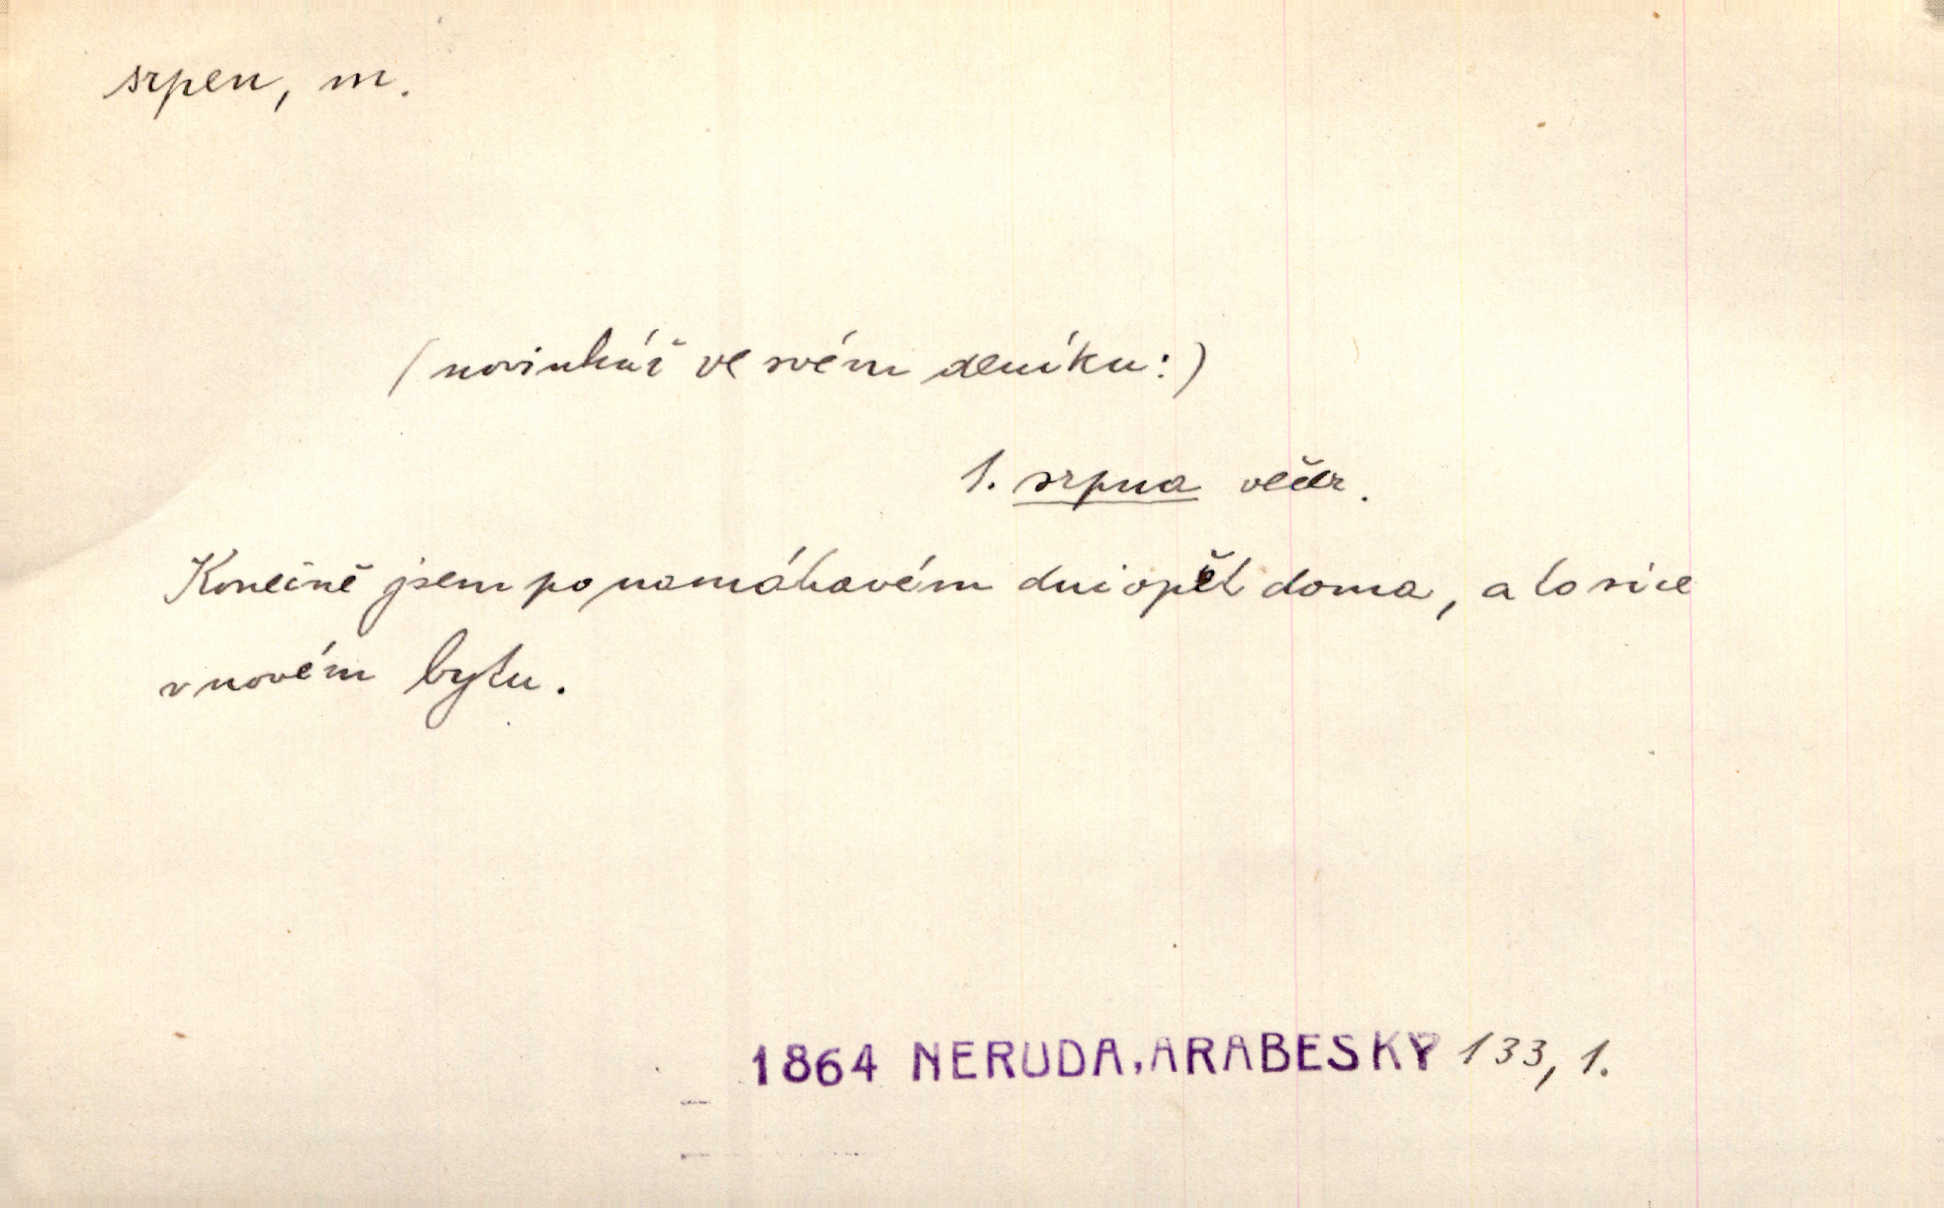 srpen, m.
(novinkář ve svém deníku:)
1. srpna večer.
Konečně jsem po namáhavém dni opět doma, a to sice
v novém bytu.
1864 NERUDA, ARABESKY 133, 1.